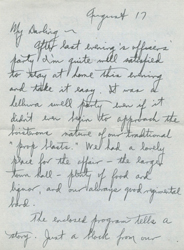 August 17
My Darling ~
After last evening's officers'
party I'm quite well satisfied
to stay at home this evening
and take it easy. It was a
swell party even if it
didn't even begin to approach the
boisterous nature of our traditional
"prop blasts." We had a lovely
place for the affair - the large
town hall - plenty of food and
liquor, and our always good
band.
The enclosed program tells a
story. Just a block from our